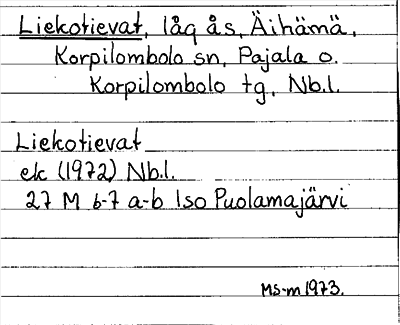 Liekotievat, låg ås, Äihämä,
Korpilombolo sn, Pajala o.
Korpilombolo tg, Nb.l.
Liekotievat
ek (1972) Nb.l.
27 M 6-7 a-b Iso Puolamajärvi
Ms-m 1973.